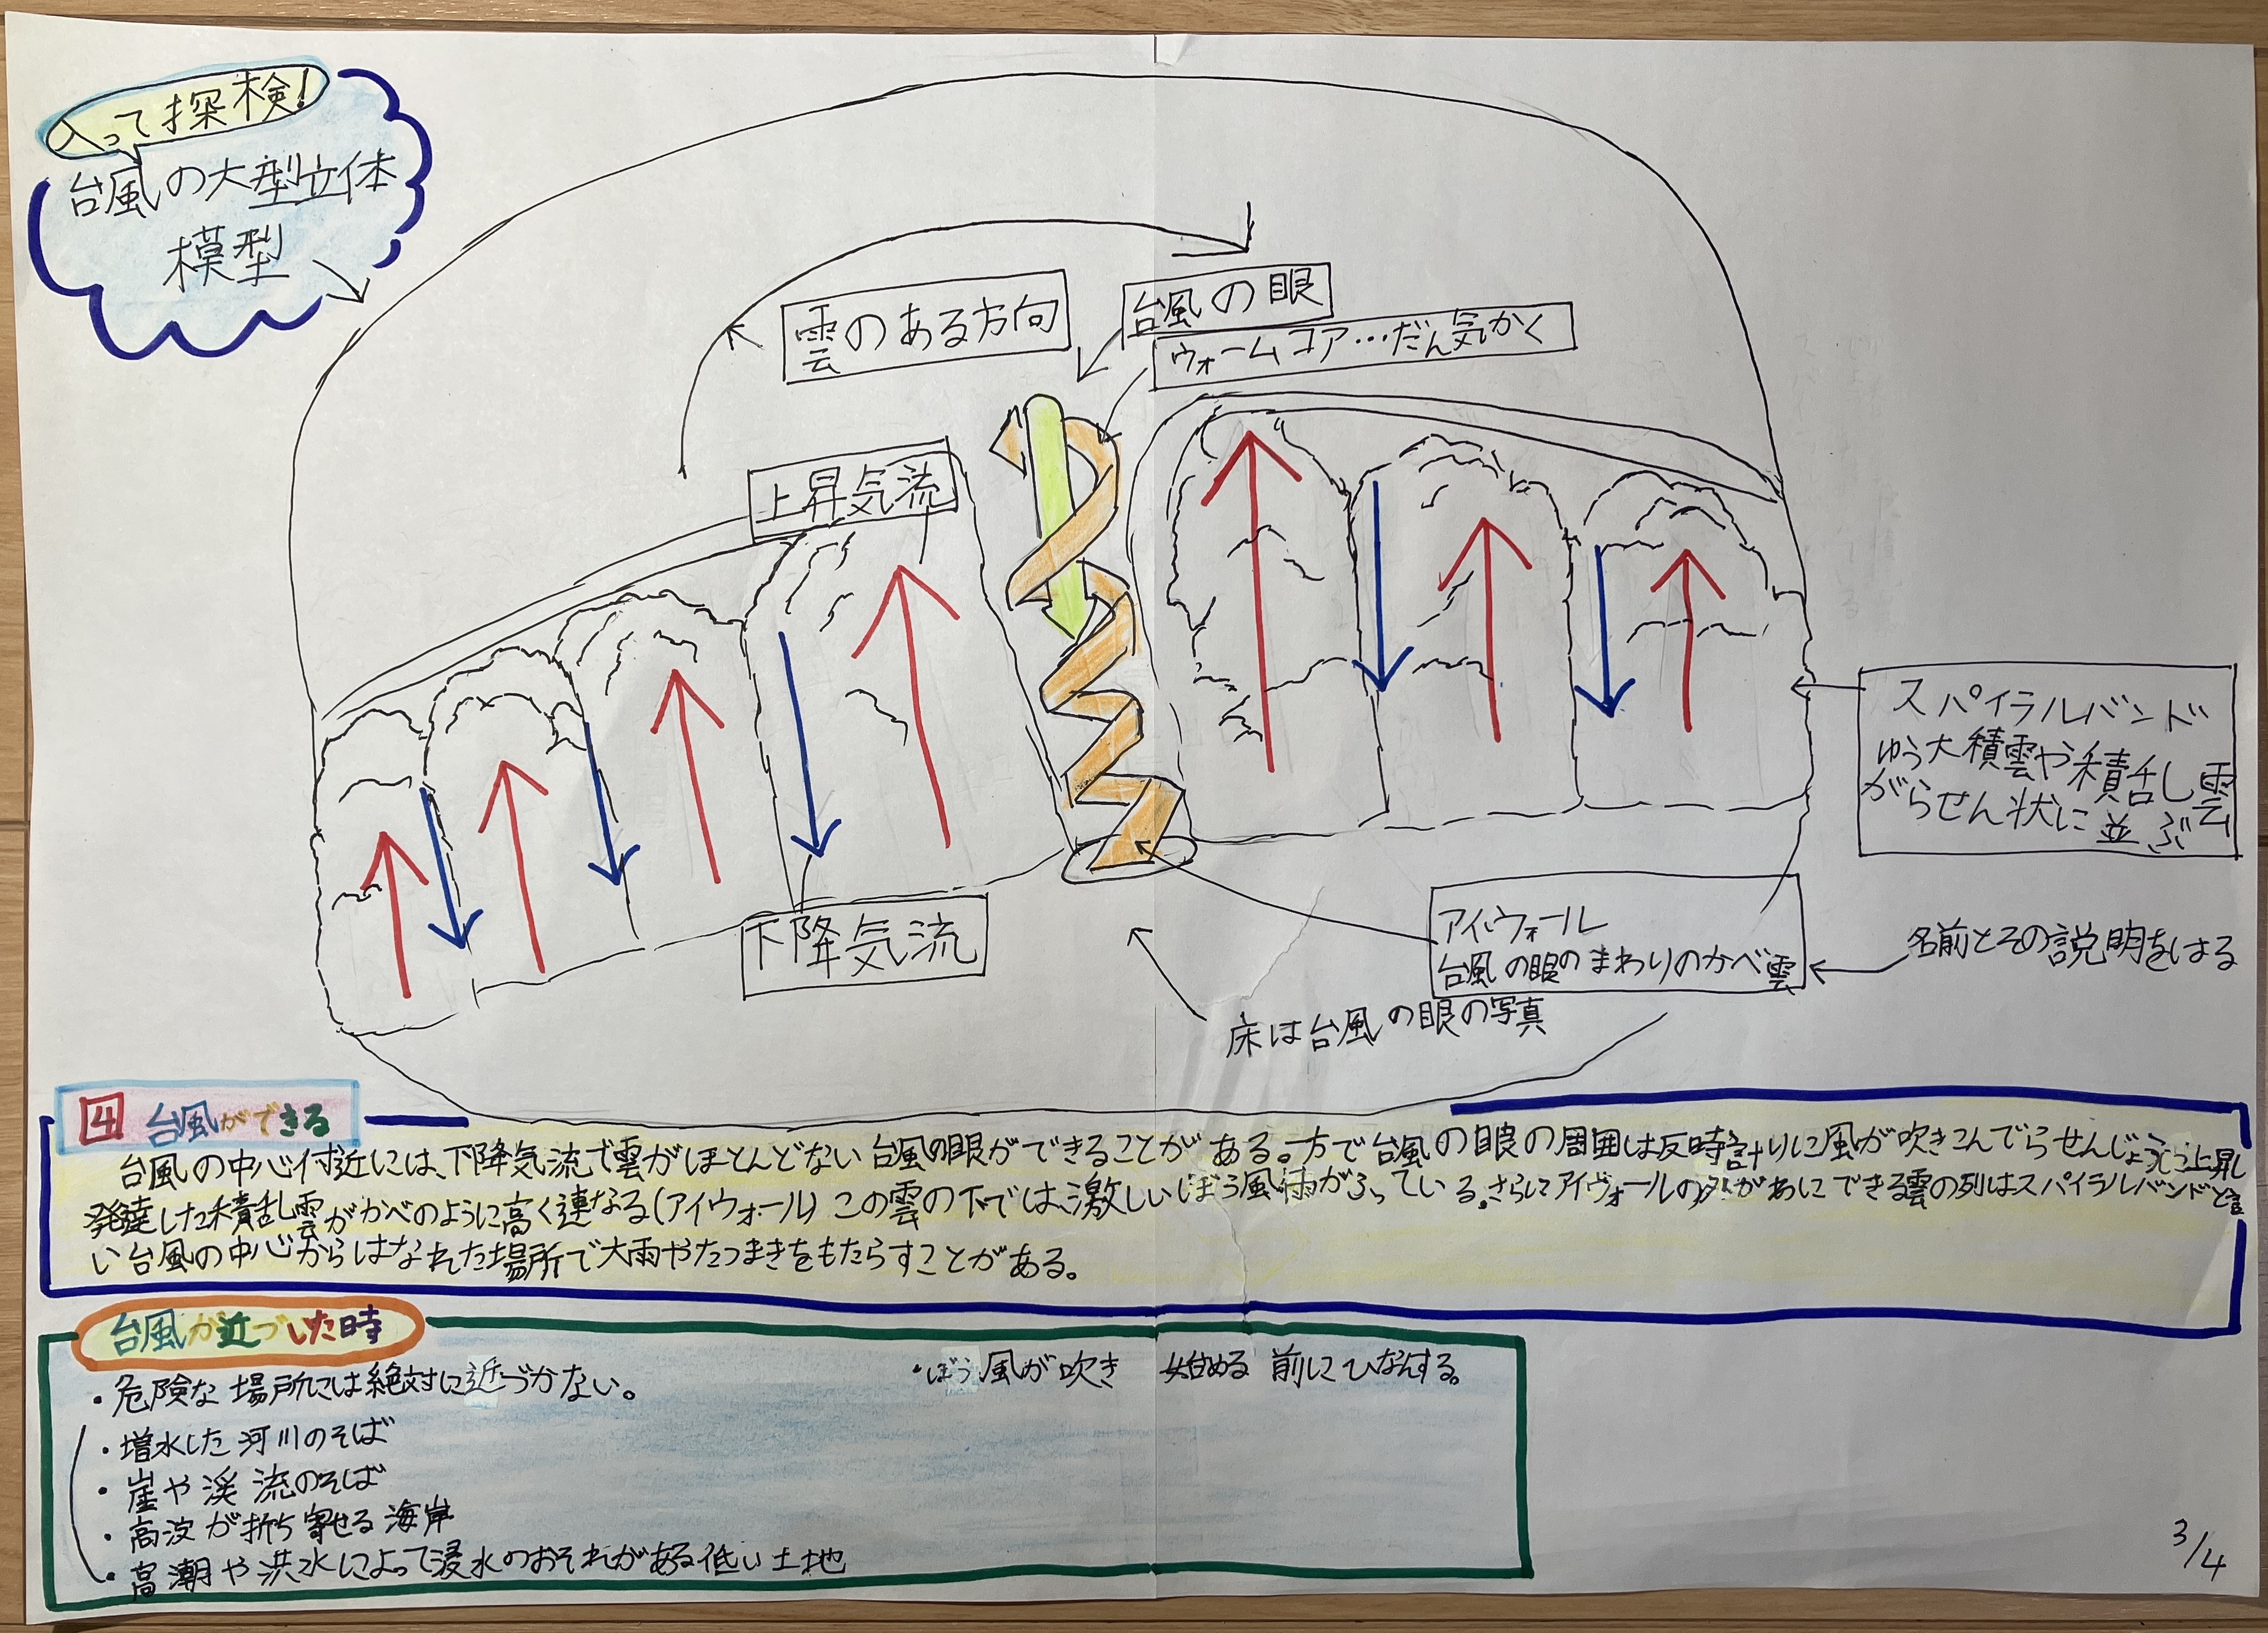 入って探検!
台風の大型立体
模型
雲のある方向
台風の眼
ウォームコア…だん気かく
上昇気流
スパイラルバンド
ゆう大積雲や積乱雲
がらせん状に並ぶ
アイウォール
台風の眼のまわりのかべ雲
名前とその説明をはる
下降気流
床は台風の眼の写真
4 台風ができる
台風の中心付近には、下降気流で雲がほとんどない台風の眼ができることがある。一方で台風の眼の周囲は反時計りに風が吹きこんでらせんじょうに上昇し
発達した積乱雲がかべのように高く連なる(アイウォール)この雲の下では、激しいぼう風雨がふっている。さらにアイヴォールの外がわにできる雲の列はスパイラルバンドと言
い台風の中心からはなれた場所で大雨やたつまきをもたらすことがある。
台風が近づいた時
・危険な場所には絶対に近づかない。
・ぼう風が吹き始める前にひなんする。
・増水した河川のそば
・崖や渓流のそば
・高波が打ち寄せる海岸
・高潮や洪水によって浸水のおそれがある低い土地
3/4